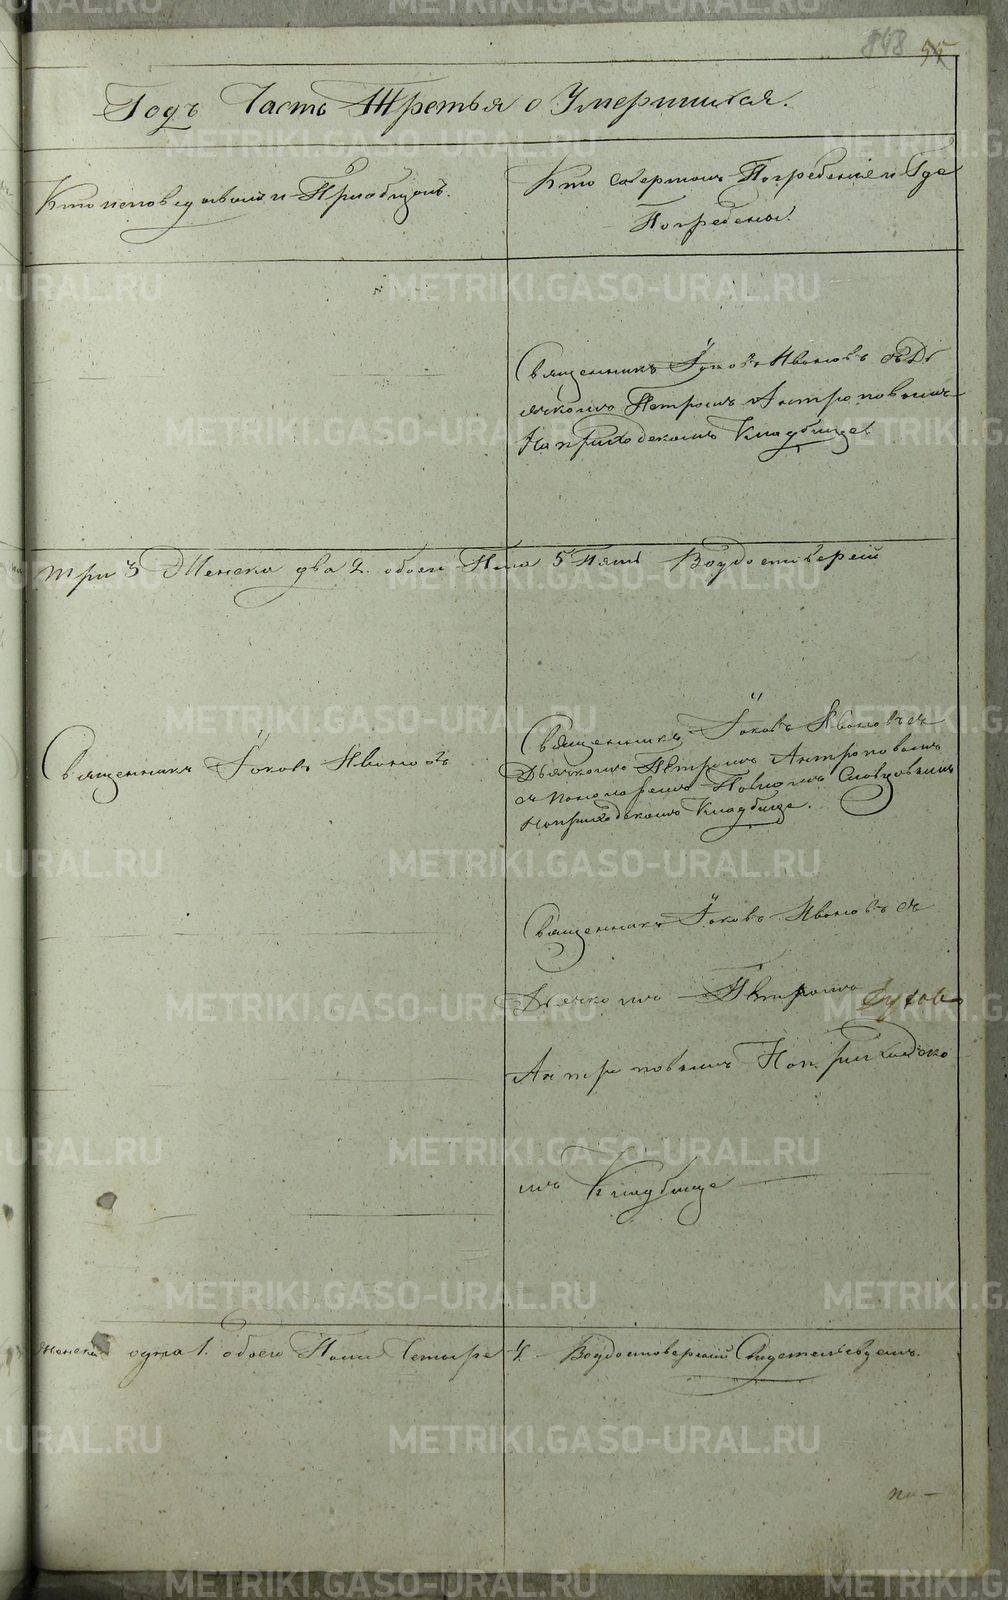 848 55
Годъ Часть Третья о Умершихъ.
Кто исповедывалъ и Приобщалъ.
Кто совершалъ Погребение и Где
Погребены.
Священникъ Iаковъ Ивановъ съ Дь
ячкомъ Петромъ Антроповымъ
На приходскомъ Кладбище
три 3 Женска два 2. обоего Пола 5 Пять Воудостоверенiи
Священникъ Iаковъ Ивановъ
Священникъ Iаковъ Ивановъ съ
Дьячкомъ Петромъ Антроповымъ
съ пономаремъ Павломъ Словцовымъ
На приходскомъ Кладбище.
Священникъ Iаковъ Ивановъ съ
Дьячкомъ Петромъ
Антроповымъ На приходско
мъ Кладбище
Женска одна 1. обоего Пола Четыре 4. Воудостоверенiи Свидетельствуемъ.
по-
METRIKI.GASO-URAL.RU